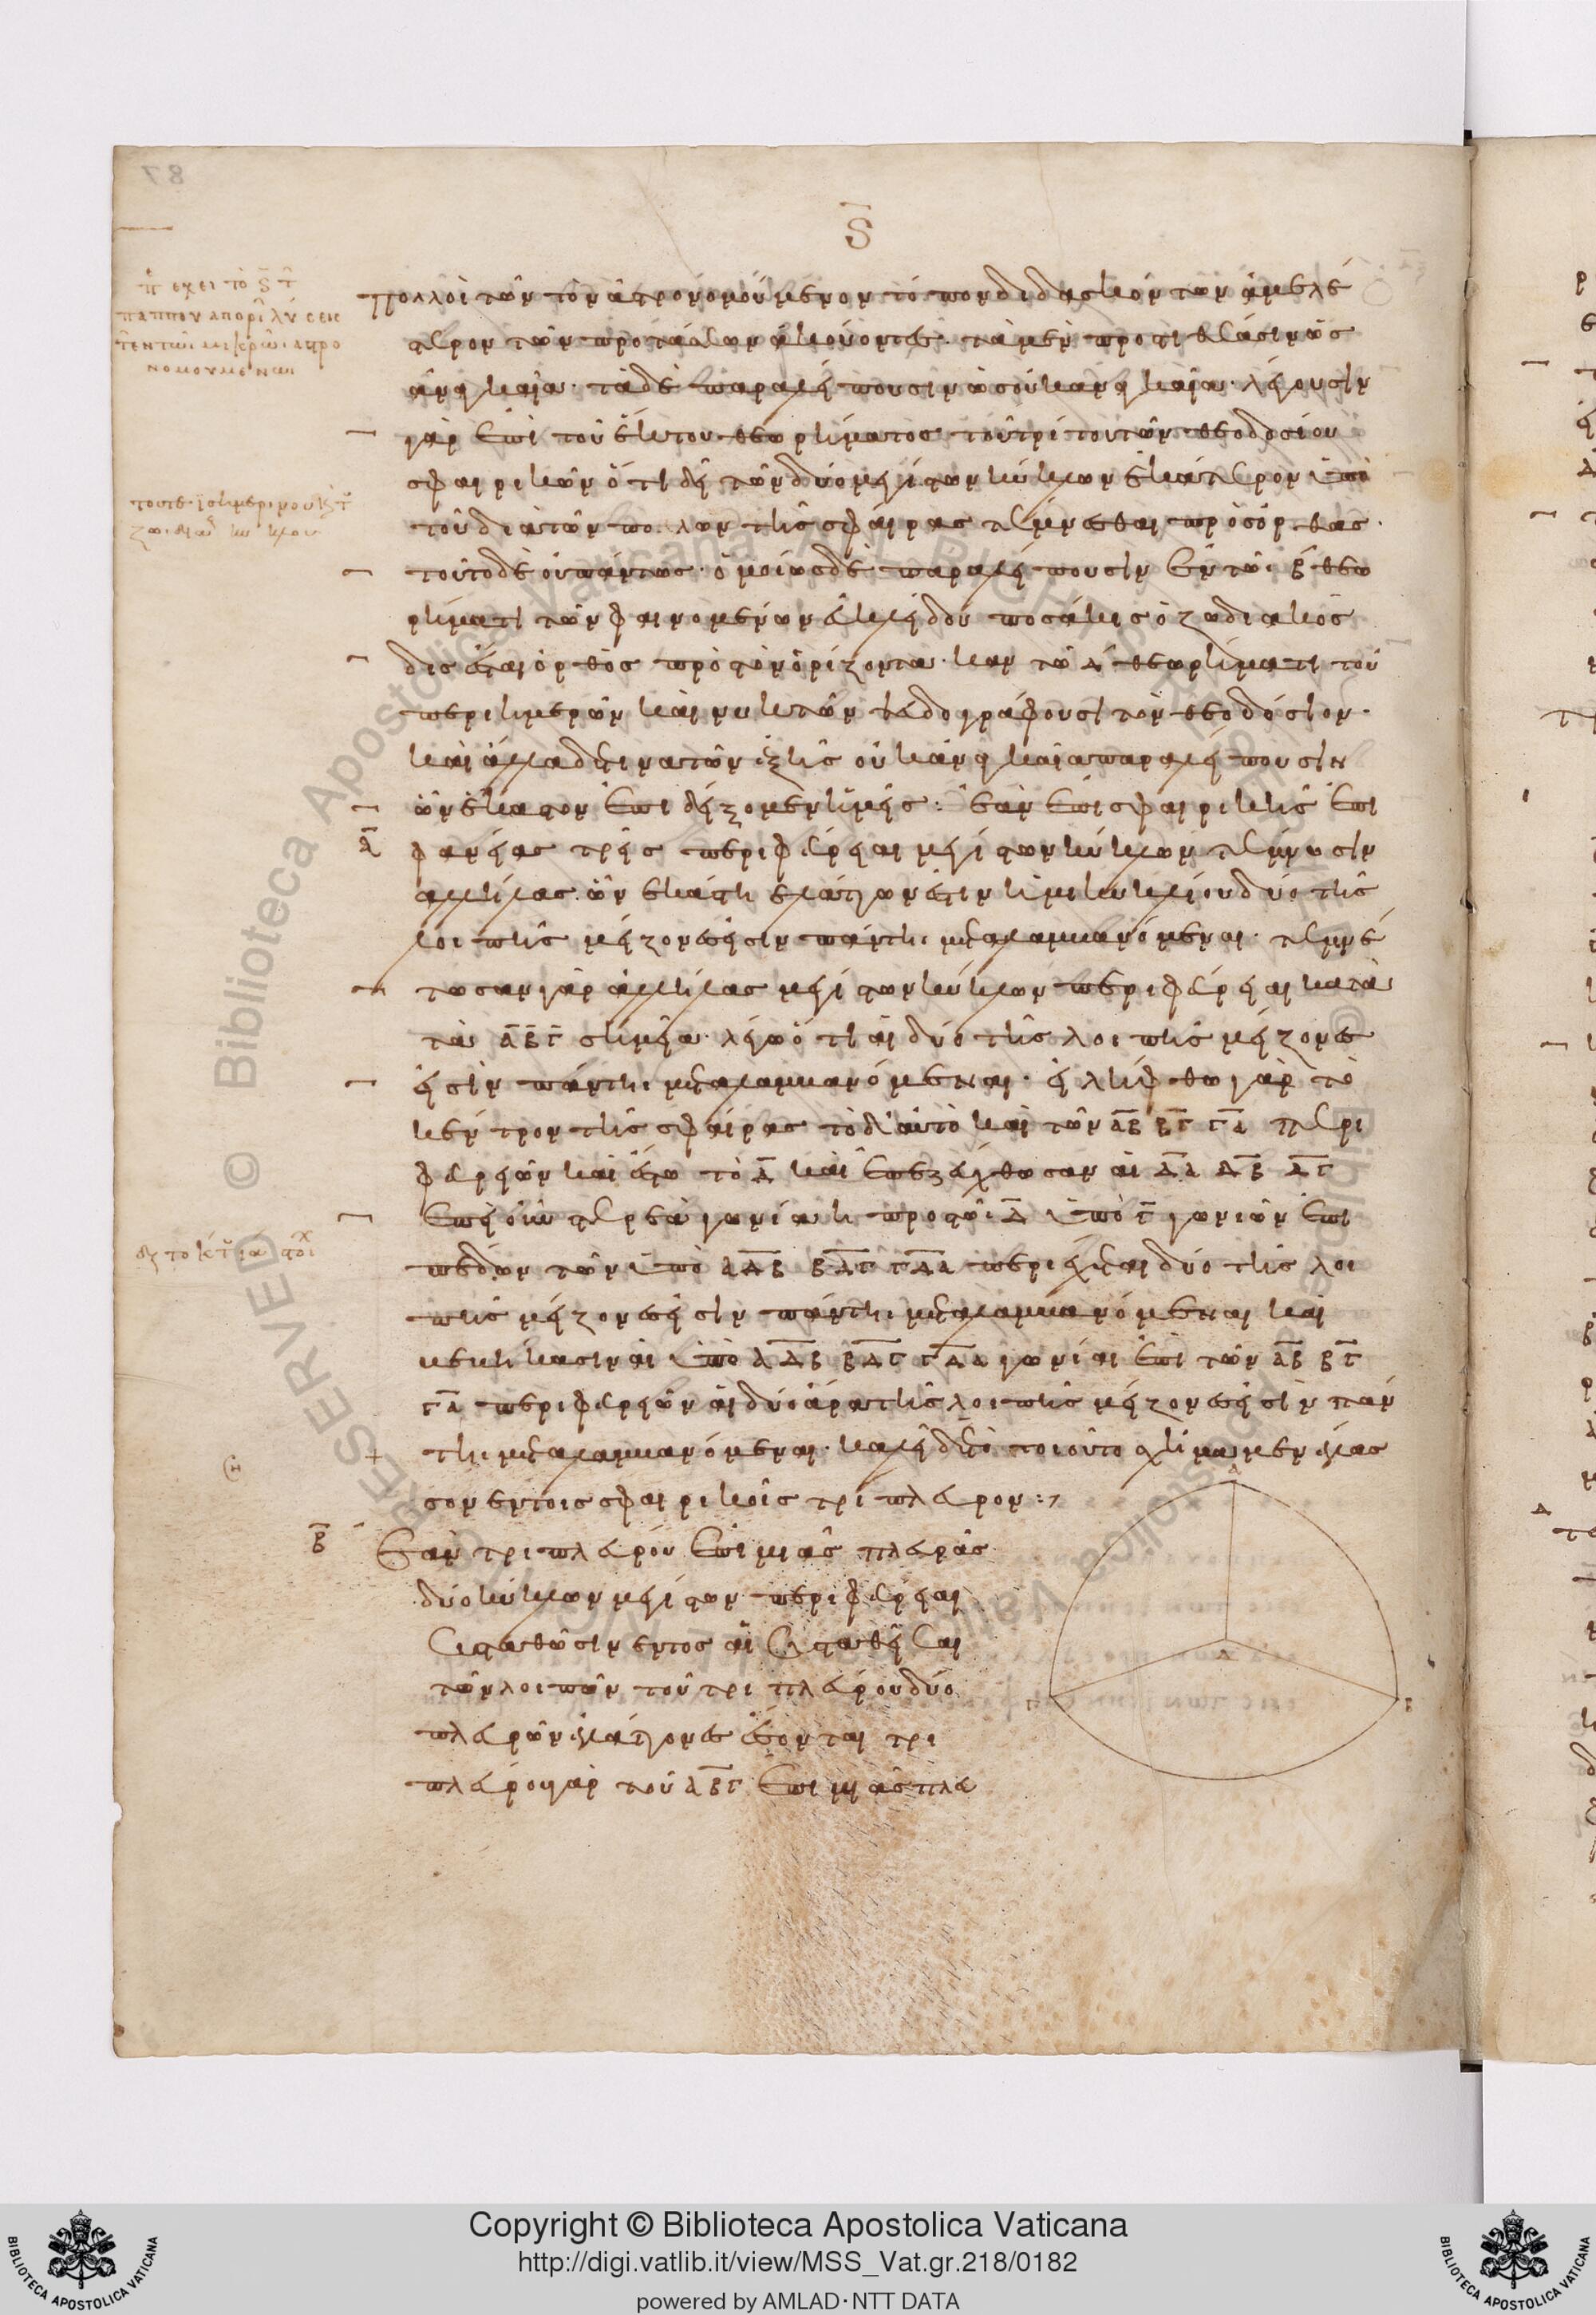 87
ϛ
περιέχει τὸ ϛ τῆς
πάππου ἀποριῶν λύσεις
τῶν ἐν τῶι μικρῶι ἀστρο
νομουμένωι
Πολλοὶ τῶν τὸν ἀστρονομούμενον τόπον διδασκόντων ἀμελέ
στερον τῶν προτάσεων ἀκούοντες· τὰ μὲν προστιθέασιν ὡς
ἀναγκαῖα· τὰ δὲ παραλείπουσιν ὡς οὐκ ἀναγκαῖα· λέγουσιν
γὰρ ἐπὶ τοῦ ἕκτου θεωρήματος τοῦ τρίτου τῶν θεοδοσίου
σφαιρικῶν ὅτι δεῖ τῶν δύο μεγίστων κύκλων ἑκάτερον ὑπὸ
τοῦ διὰ τῶν πόλων τῆς σφαίρας τέμνεσθαι πρὸς ὀρθάς·
τοῦτο δὲ οὐ πάντως· ὁμοίως δὲ παραλείπουσιν ἐν τῶι β θεω
ρήματι τῶν φαινομένων εὐκλείδου ποσάκις ὁ ζωδιακὸς
δὶς ἔσται ὀρθὸς πρὸς τὸν ὁρίζοντα· κἀν τῶ δ θεωρήματι τοῦ
περὶ ἡμερῶν καὶ νυκτῶν ψευδογραφοῦσι τὸν θεοδόσιον·
καὶ ἄλλα δέ τινα τῶν ἑξῆς οὐκ ἀναγκαῖα παραλείπουσιν
ὧν ἕκαστον ἐπιδείξομεν ἡμεῖς: ἐὰν ἐπὶ σφαιρικῆς ἐπι
α
φανείας τρεῖς περιφέρειαι μεγίστων κύκλων τέμνωσιν
ἀλλήλας ὧν ἑκάστη ἐλάττων ἐστὶν ἡμικυκλίου δύο τῆς
λοιπῆς μείζονές εἰσιν πάντηι μεταλαμβανόμεναι· τεμνέ
τωσαν γὰρ ἀλλήλας μεγίστων κύκλων περιφέρειαι κατὰ
τὰ ΑΒΓ σημεῖα· λέγω ὅτι αἱ δύο τῆς λοιπῆς μείζονές
εἰσιν πάντηι μεταλαμβανόμεναι· εἰλήφθω γὰρ τὸ
κέντρον τῆς σφαίρας τὸ δ' αὐτὸ καὶ τῶν ΑΒ ΒΓ ΓΑ περι
φερειῶν καὶ ἔστω τὸ Δ καὶ ἐπεζεύχθωσαν αἱ ΔΑ ΔΒ ΔΓ
ἐπεὶ οὖν στερεὰ γωνία ἡ πρὸς τῶι Δ ὑπὸ Γ γωνιῶν ἐπι
πέδων τῶν ὑπὸ ΑΔΒ ΒΔΓ ΓΔΑ περιέχεται δύο τῆς λοι
πῆς μείζονές εἰσιν πάντηι μεταλαμβανόμεναι καὶ
βεβήκασιν αἱ ὑπὸ ΑΔΒ ΒΔΓ ΓΔΑ γωνίαι ἐπὶ τῶν ΑΒ ΒΓ
ΓΑ περιφερειῶν αἱ δύο ἄρα τῆς λοιπῆς μείζονές εἰσιν πάν
τηι μεταλαμβανόμεναι· καλεῖ δὲ τὸ τοιοῦτο σχῆμα μενέλαος
ση
σὸν ἐν τοῖς σφαιρικοῖς τρίπλευρον:
β
Ἐὰν τριπλεύρου ἐπὶ μιᾶς πλευρᾶς
δύο κύκλων μεγίστων περιφέρειαι
συσταθῶσιν ἐντὸς αἱ συσταθεῖσαι
τῶν λοιπῶν τοῦ τριπλεύρου δύο
πλευρῶν ἐλάττονες ἔσονται τρι
πλεύρου γὰρ τοῦ ΑΒΓ ἐπὶ μιᾶς πλευ
Α
Δ
Γ
Β
Copyright © Biblioteca Apostolica Vaticana
http://digi.vatlib.it/view/MSS_Vat.gr.218/0182
powered by AMLAD·NTT DATA
BIBLIOTECA APOSTOLICA VATICANA
BIBLIOTECA APOSTOLICA VATICANA